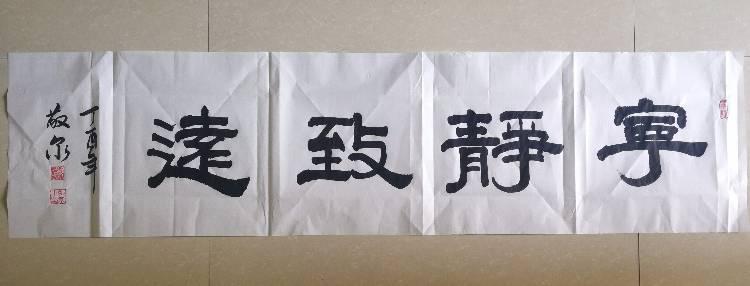 寧靜致遠
丁酉年
敬尔